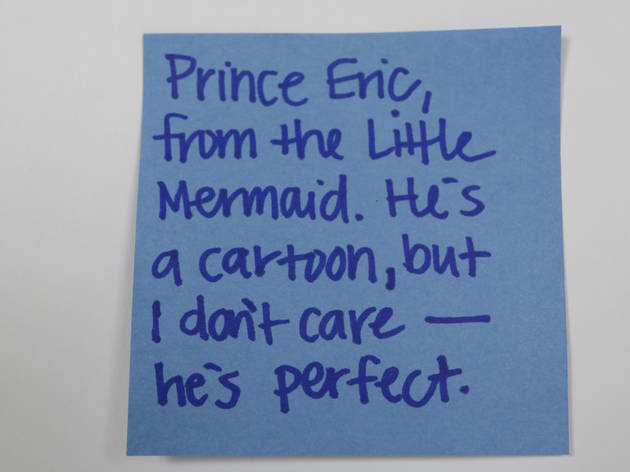 Prince Eric,
from the Little
Mermaid. He's
a cartoon, but
I don't care —
he's perfect.